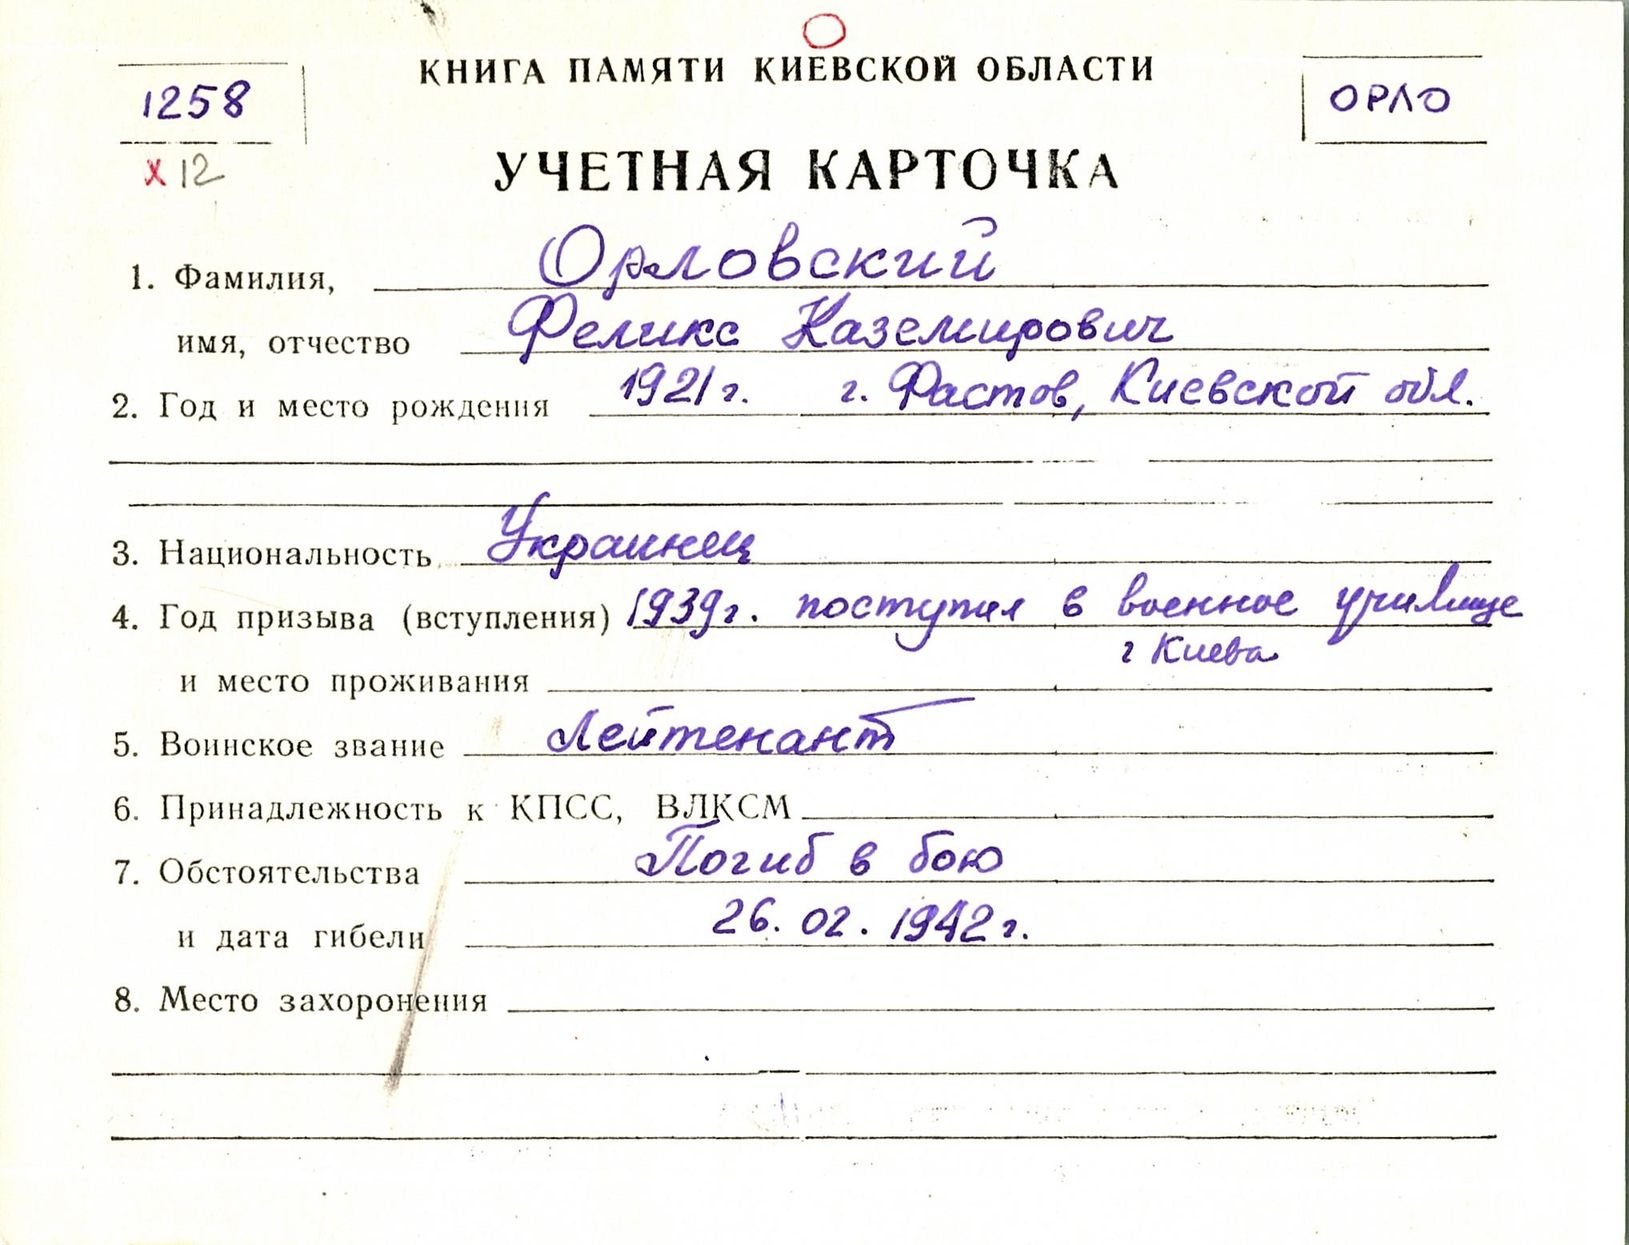 КНИГА ПАМЯТИ КИЕВСКОЙ ОБЛАСТИ
1258
ОРЛО
х 12
УЧЕТНАЯ КАРТОЧКА
1. Фамилия, Орловский
имя, отчество Феликс Каземирович
2. Год и место рождения 1921г. г. Фастов, Киевской обл.
3. Национальность Украинец
4. Год призыва (вступления) 1939г. поступил в военное училище
г Киева
и место проживания
5. Воинское звание Лейтенант
6. Принадлежность к КПСС, ВЛКСМ
7. Обстоятельства Погиб в бою
и дата гибели 26.02.1942г.
8. Место захоронения